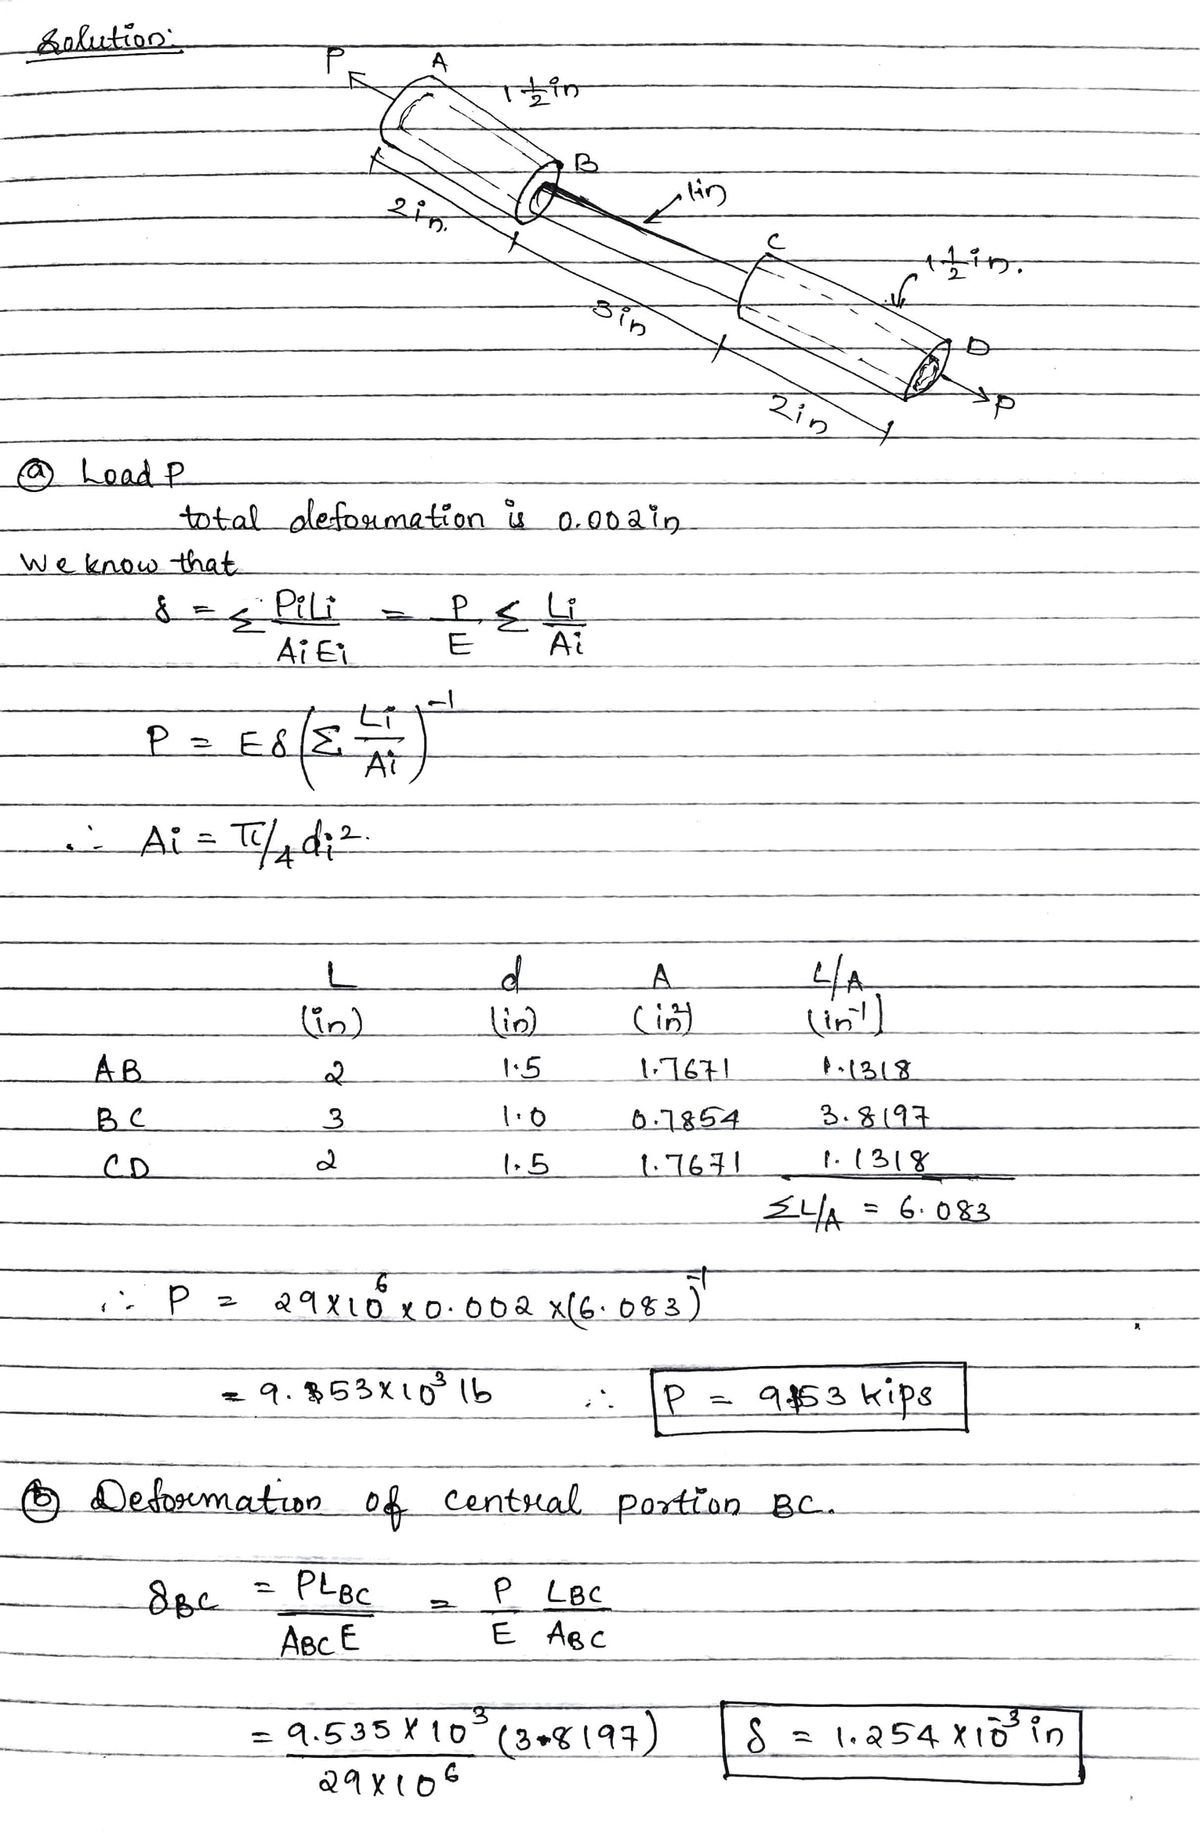 Solution:
P A
1 1/2 in
B
1in
2in.
C
1 1/2 in.
3in
D
P
2in
(a) Load P
total deformation is 0.002in
We know that
δ = Σ PiLi / AiEi = P/E Σ Li/Ai
P = Eδ (Σ Li/Ai)^-1
∴ Ai = π/4 di².
L d A L/A
(in) (in) (in²) (in^-1)
AB 2 1.5 1.7671 1.1318
BC 3 1.0 0.7854 3.8197
CD 2 1.5 1.7671 1.1318
ΣL/A = 6.083
∴ P = 29×10^6 × 0.002 ×(6.083)^-1
= 9.53×10³ lb ∴ P = 9.53 kips
(b) Deformation of central portion BC.
δBC = PLBC / ABC E = P/E LBC/ABC
= 9.535 × 10³ (3.8197) / 29×10^6 δ = 1.254 ×10^-3 in